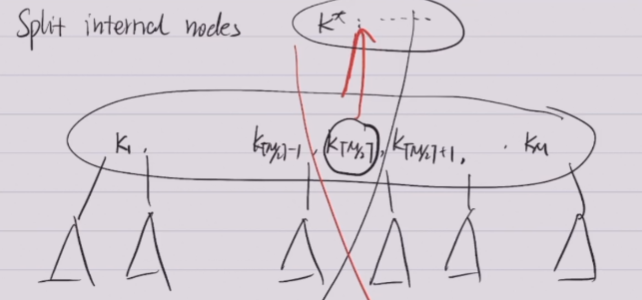 Split internal nodes
K* . ......
K₁ . K⌈M/2⌉-1 , K⌈M/2⌉ , K⌈M/2⌉+1 , . KM